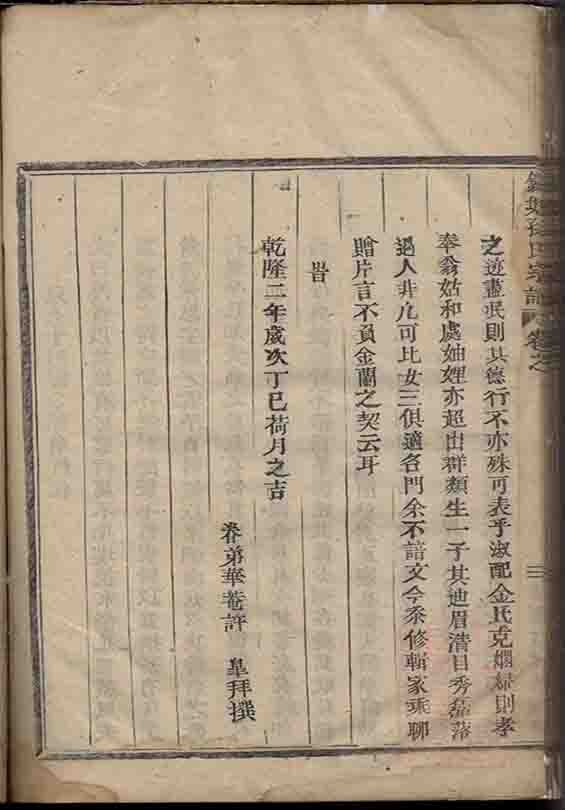 孫氏宗譜 卷之 三
之遊盡氓則其德行不亦殊可表乎淑配金氏克嫻婦則孝
奉翁姑和處妯娌亦超出群類生一子其迪眉清目秀磊落
過人非凡可比女三俱適名門余不諳文今忝修輯家乘聊
贈片言不負金蘭之契云耳
旹
乾隆二年歲次丁巳荷月之吉
眷弟華菴許 皐拜撰